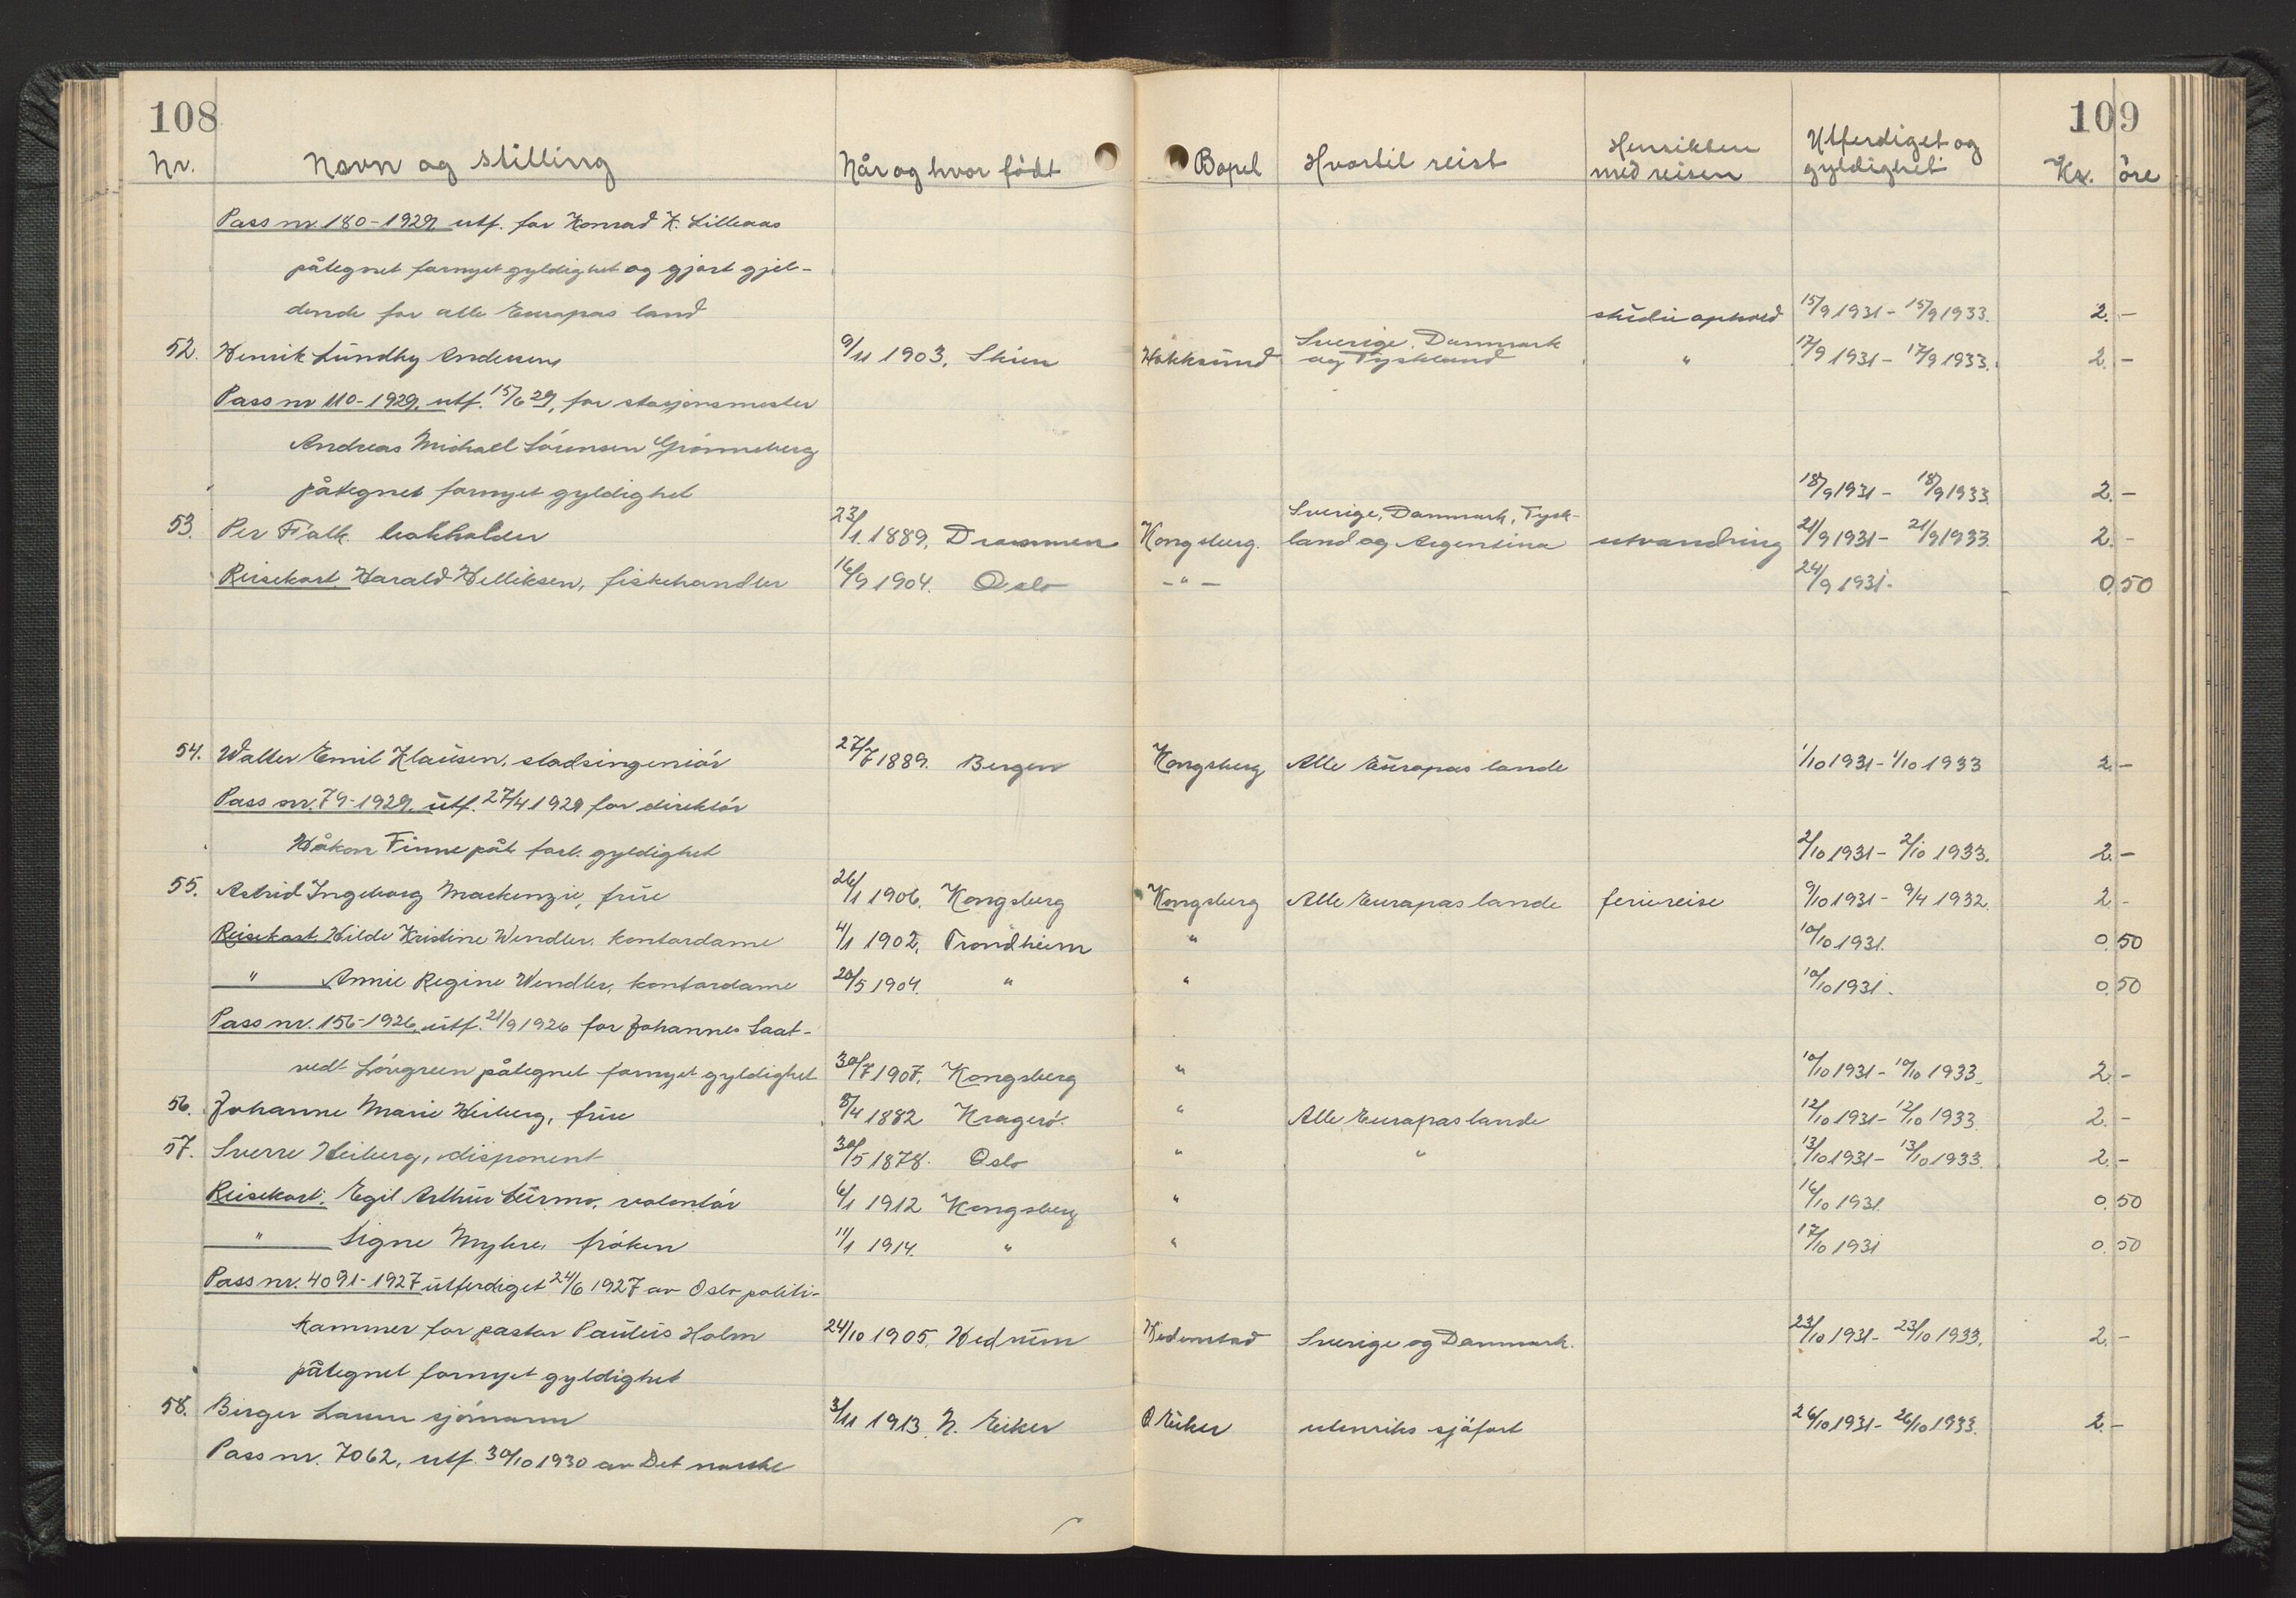 108
109
Nr. Navn og stilling Når og hvor født Bopel Hvortil reist Hensikten med reisen Utferdiget og gyldighet Kr. öre
Pass nr. 180-1929, utf. for Konrad K. Lilleaas
påtegnet fornyet gyldighet og gjort gjel-
dende for alle Europas land studieophold 15/9 1931 - 15/9 1933. 2. -
52. Henrik Lundby Andersen 9/11 1903, Skien Hokksund Sverige, Danmark og Tyskland " 17/9 1931 - 17/9 1933. 2. -
Pass nr 110-1929, utf. 15/6 29, for stasjonsmester
Andreas Michael Sörensen Grönneberg
påtegnet fornyet gyldighet 18/9 1931 - 18/9 1933. 2. -
53. Per Falk, bokholder 23/1 1889, Drammen Kongsberg. Sverige, Danmark, Tysk-land og Argentina utvandring 21/9 1931 - 21/9 1933. 2. -
Reisekort Harald Helliksen, fiskehandler 16/9 1904. Oslo - " - 24/9 1931. 0.50
54. Walter Emil Klausen, stadsingeniör 27/7 1889. Bergen Kongsberg Alle Europas lande 1/10 1931 - 1/10 1933 2. -
Pass nr. 79-1929, utf. 27/4 1929 for direktör
Håkon Finne påt. forl. gyldighet 2/10 1931 - 2/10 1933. 2. -
55. Astrid Ingeborg Mackenzie, frue 26/1 1906. Kongsberg Kongsberg Alle Europas lande feriereise 9/10 1931 - 9/4 1932. 2 -
Reisekort Hilde Kristine Wendler, kontordame 4/1 1902, Trondheim " 10/10 1931. 0.50
" Annie Regine Wendler, kontordame 20/5 1904. " " 10/10 1931. 0.50
Pass nr. 156-1926, utf. 21/9 1926 for Johannes Saat-
vedt Lövgreen påtegnet fornyet gyldighet 30/7 1907, Kongsberg " 10/10 1931 - 10/10 1933. 2. -
56. Johanne Marie Heiberg, frue 8/4 1882 Kragerö. " Alle Europas lande 12/10 1931 - 12/10 1933. 2. -
57. Sverre Heiberg, disponent 30/5 1878. Oslo " " 13/10 1931 - 13/10 1933. 2. -
Reisekort. Egil Arthur volontör 6/1 1912 Kongsberg " 16/10 1931. 0.50
" Signe Myhre, fröken 11/1 1914. " " 17/10 1931 0.50
Pass nr. 4091-1927 utferdiget 24/6 1927 av Oslo politi-
kammer for pastor Paulus Holm 24/10 1905, Hedrum Hedenstad Sverige og Danmark. 23/10 1931 - 23/10 1933. 2. -
påtegnet fornyet gyldighet
58. Birger sjömann 3/11 1913 N. Eiker Ö Eiker utenriks sjöfart 26/10 1931 - 26/10 1933. 2. -
Pass nr. 7062, utf. 30/10 1930 av Det norske